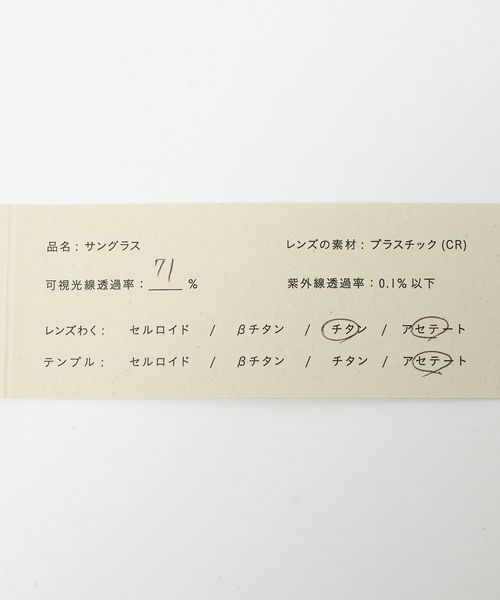 品名：サングラス レンズの素材：プラスチック (CR)
可視光線透過率：71 % 紫外線透過率：0.1% 以下
レンズわく： セルロイド / βチタン / チタン / アセテート
テンプル： セルロイド / βチタン / チタン / アセテート